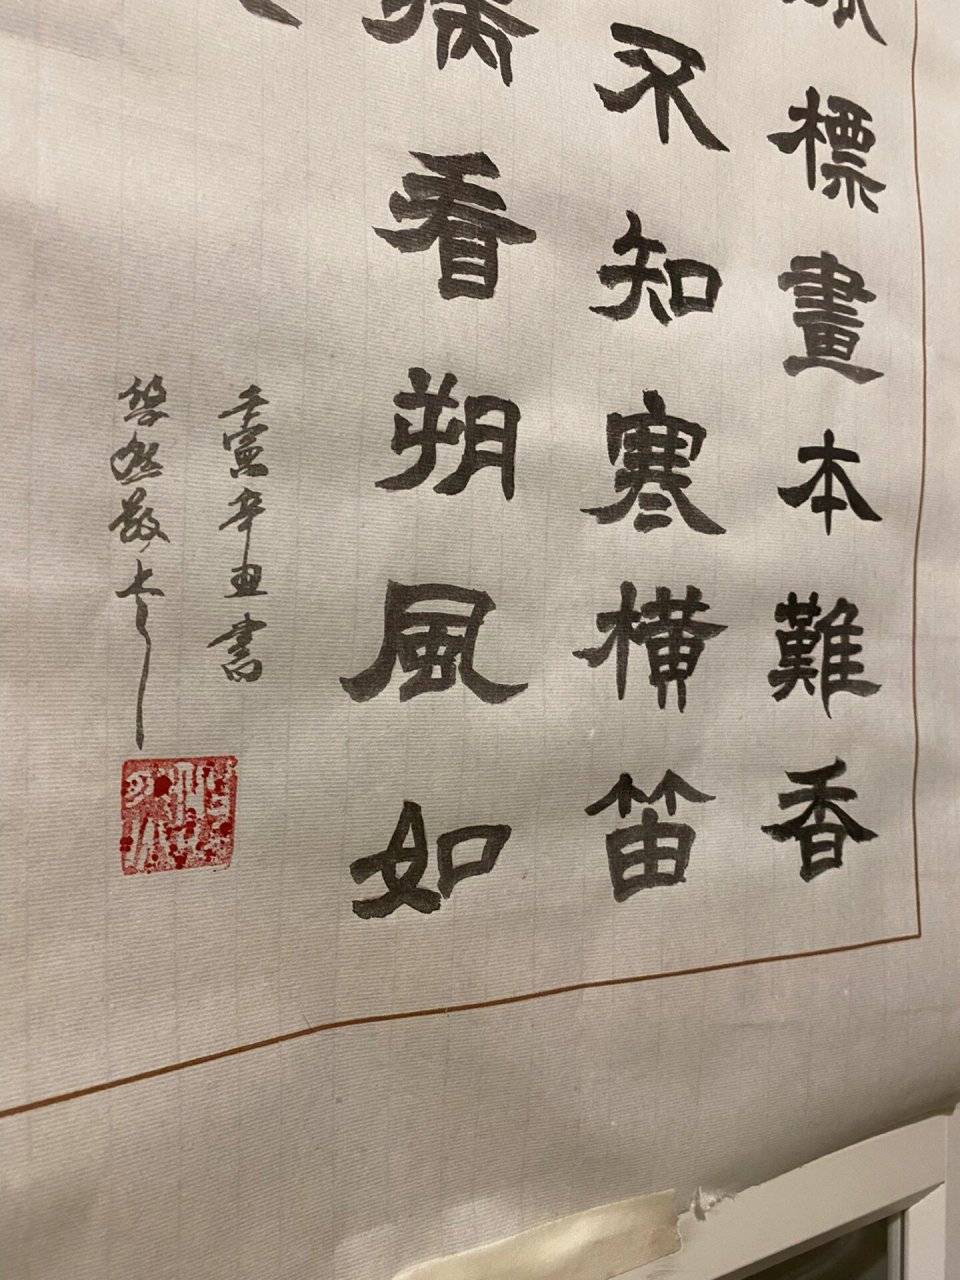 孤標畫本難香
不知寒橫笛
病看朔風如
壬寅辛丑書
悠然敬上